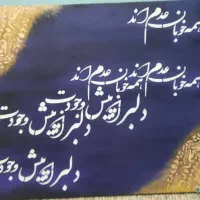 همه خوبان عدم اند
همه خوبان عدم اند همه خوبان عدم اند
دلبرا پیش وجودت دلبرا پیش وجودت
دلبرا پیش وجودت